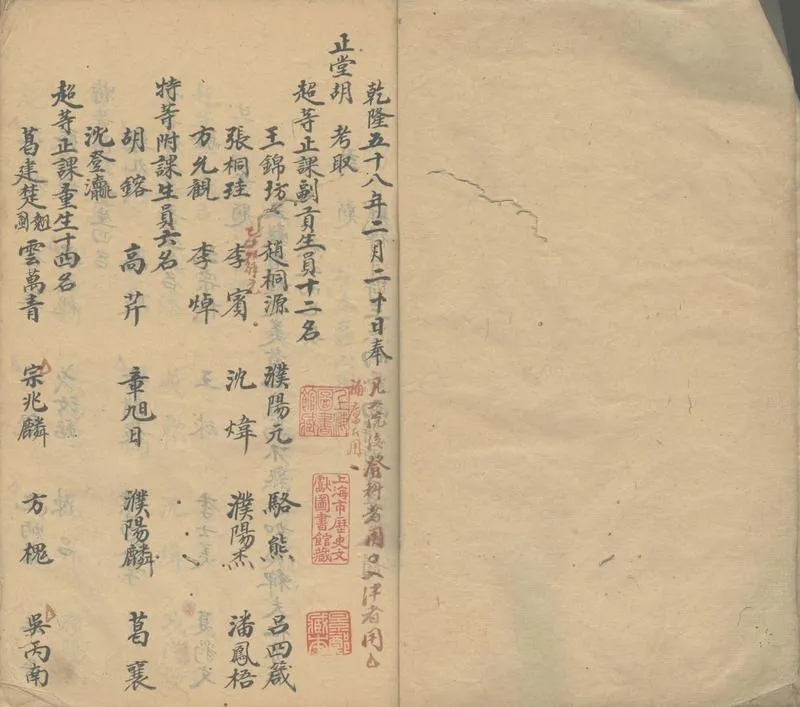 乾隆五十八年二月二十日奉
凡入院後登科者用
補廩
正堂胡 考取
超等正課副貢生員十二名
王錦坊 趙桐源 濮陽元 駱熊 呂四箴
張桐珪 李賓 沈煒 濮陽杰 潘鳳梧
方允觀 李焯
特等附課生員六名
胡鎔 高芹 章旭日 濮陽麟 葛襄
沈登瀛
超等正課童生十四名
葛建楚 雲萬青 宗兆麟 方槐 吳丙南
上海圖書館藏
上海市歷史文獻圖書館藏